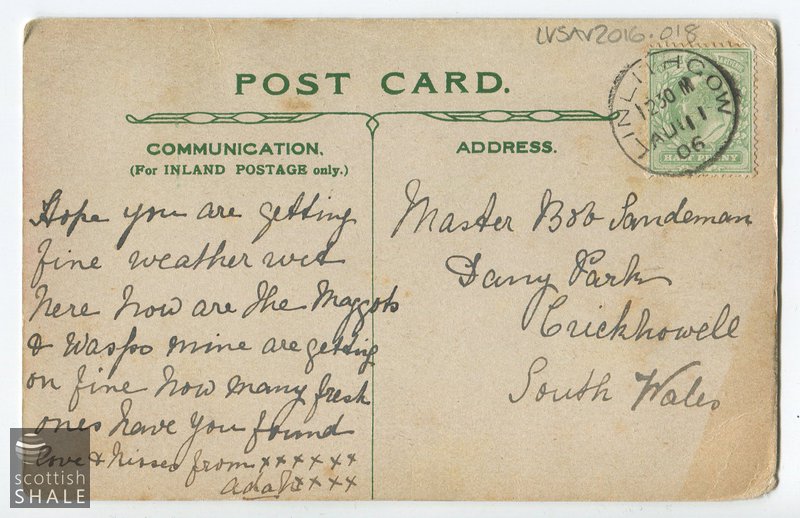 LVSAV2016.018
POST CARD.
COMMUNICATION.
(For INLAND POSTAGE only.)
Hope you are getting
fine weather wet
here how are the Maggots
& Wasps mine are getting
on fine how many fresh
ones have you found
love & kisses from xxxxxx
xxxx
ADDRESS.
Master Bob Sandeman
Dany Park
Crickhowell
South Wales
LINLITHGOW
1230 M
AU 11
06
HALF PENNY
scottish
SHALE